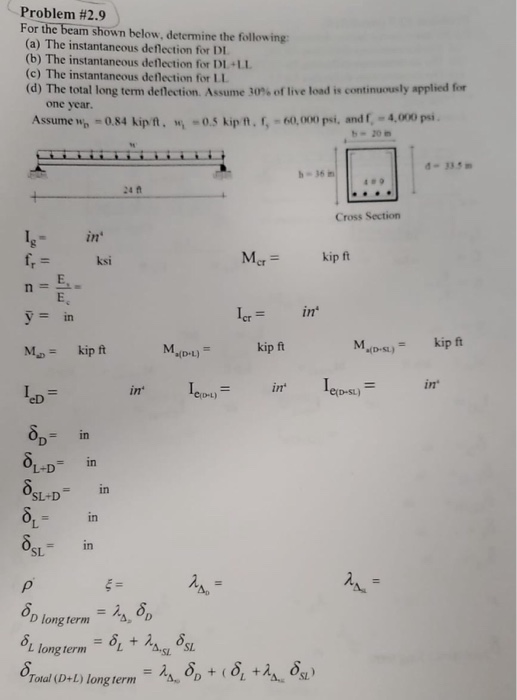 Problem #2.9
For the beam shown below, determine the following:
(a) The instantaneous deflection for DL
(b) The instantaneous deflection for DL+LL
(c) The instantaneous deflection for LL
(d) The total long term deflection. Assume 30% of live load is continuously applied for
one year.
Assume w_D = 0.84 kip/ft, w_L = 0.5 kip/ft, f_y = 60,000 psi, and f_c = 4,000 psi.
w
24 ft
b = 20 in
h = 36 in
d = 33.5 in
4 #9
Cross Section
I_g = in⁴
f_r = ksi M_cr = kip ft
n = E_s/E_c =
ȳ = in I_cr = in⁴
M_aD = kip ft M_a(D+L) = kip ft M_a(D+SL) = kip ft
I_eD = in⁴ I_e(D+L) = in⁴ I_e(D+SL) = in⁴
δ_D = in
δ_L+D = in
δ_SL+D = in
δ_L = in
δ_SL = in
ρ' ξ = λ_Δ∞ = λ_Δ =
δ_D long term = λ_Δ∞ δ_D
δ_L long term = δ_L + λ_Δ,SL δ_SL
δ_Total (D+L) long term = λ_Δ∞ δ_D + ( δ_L + λ_Δ δ_SL)